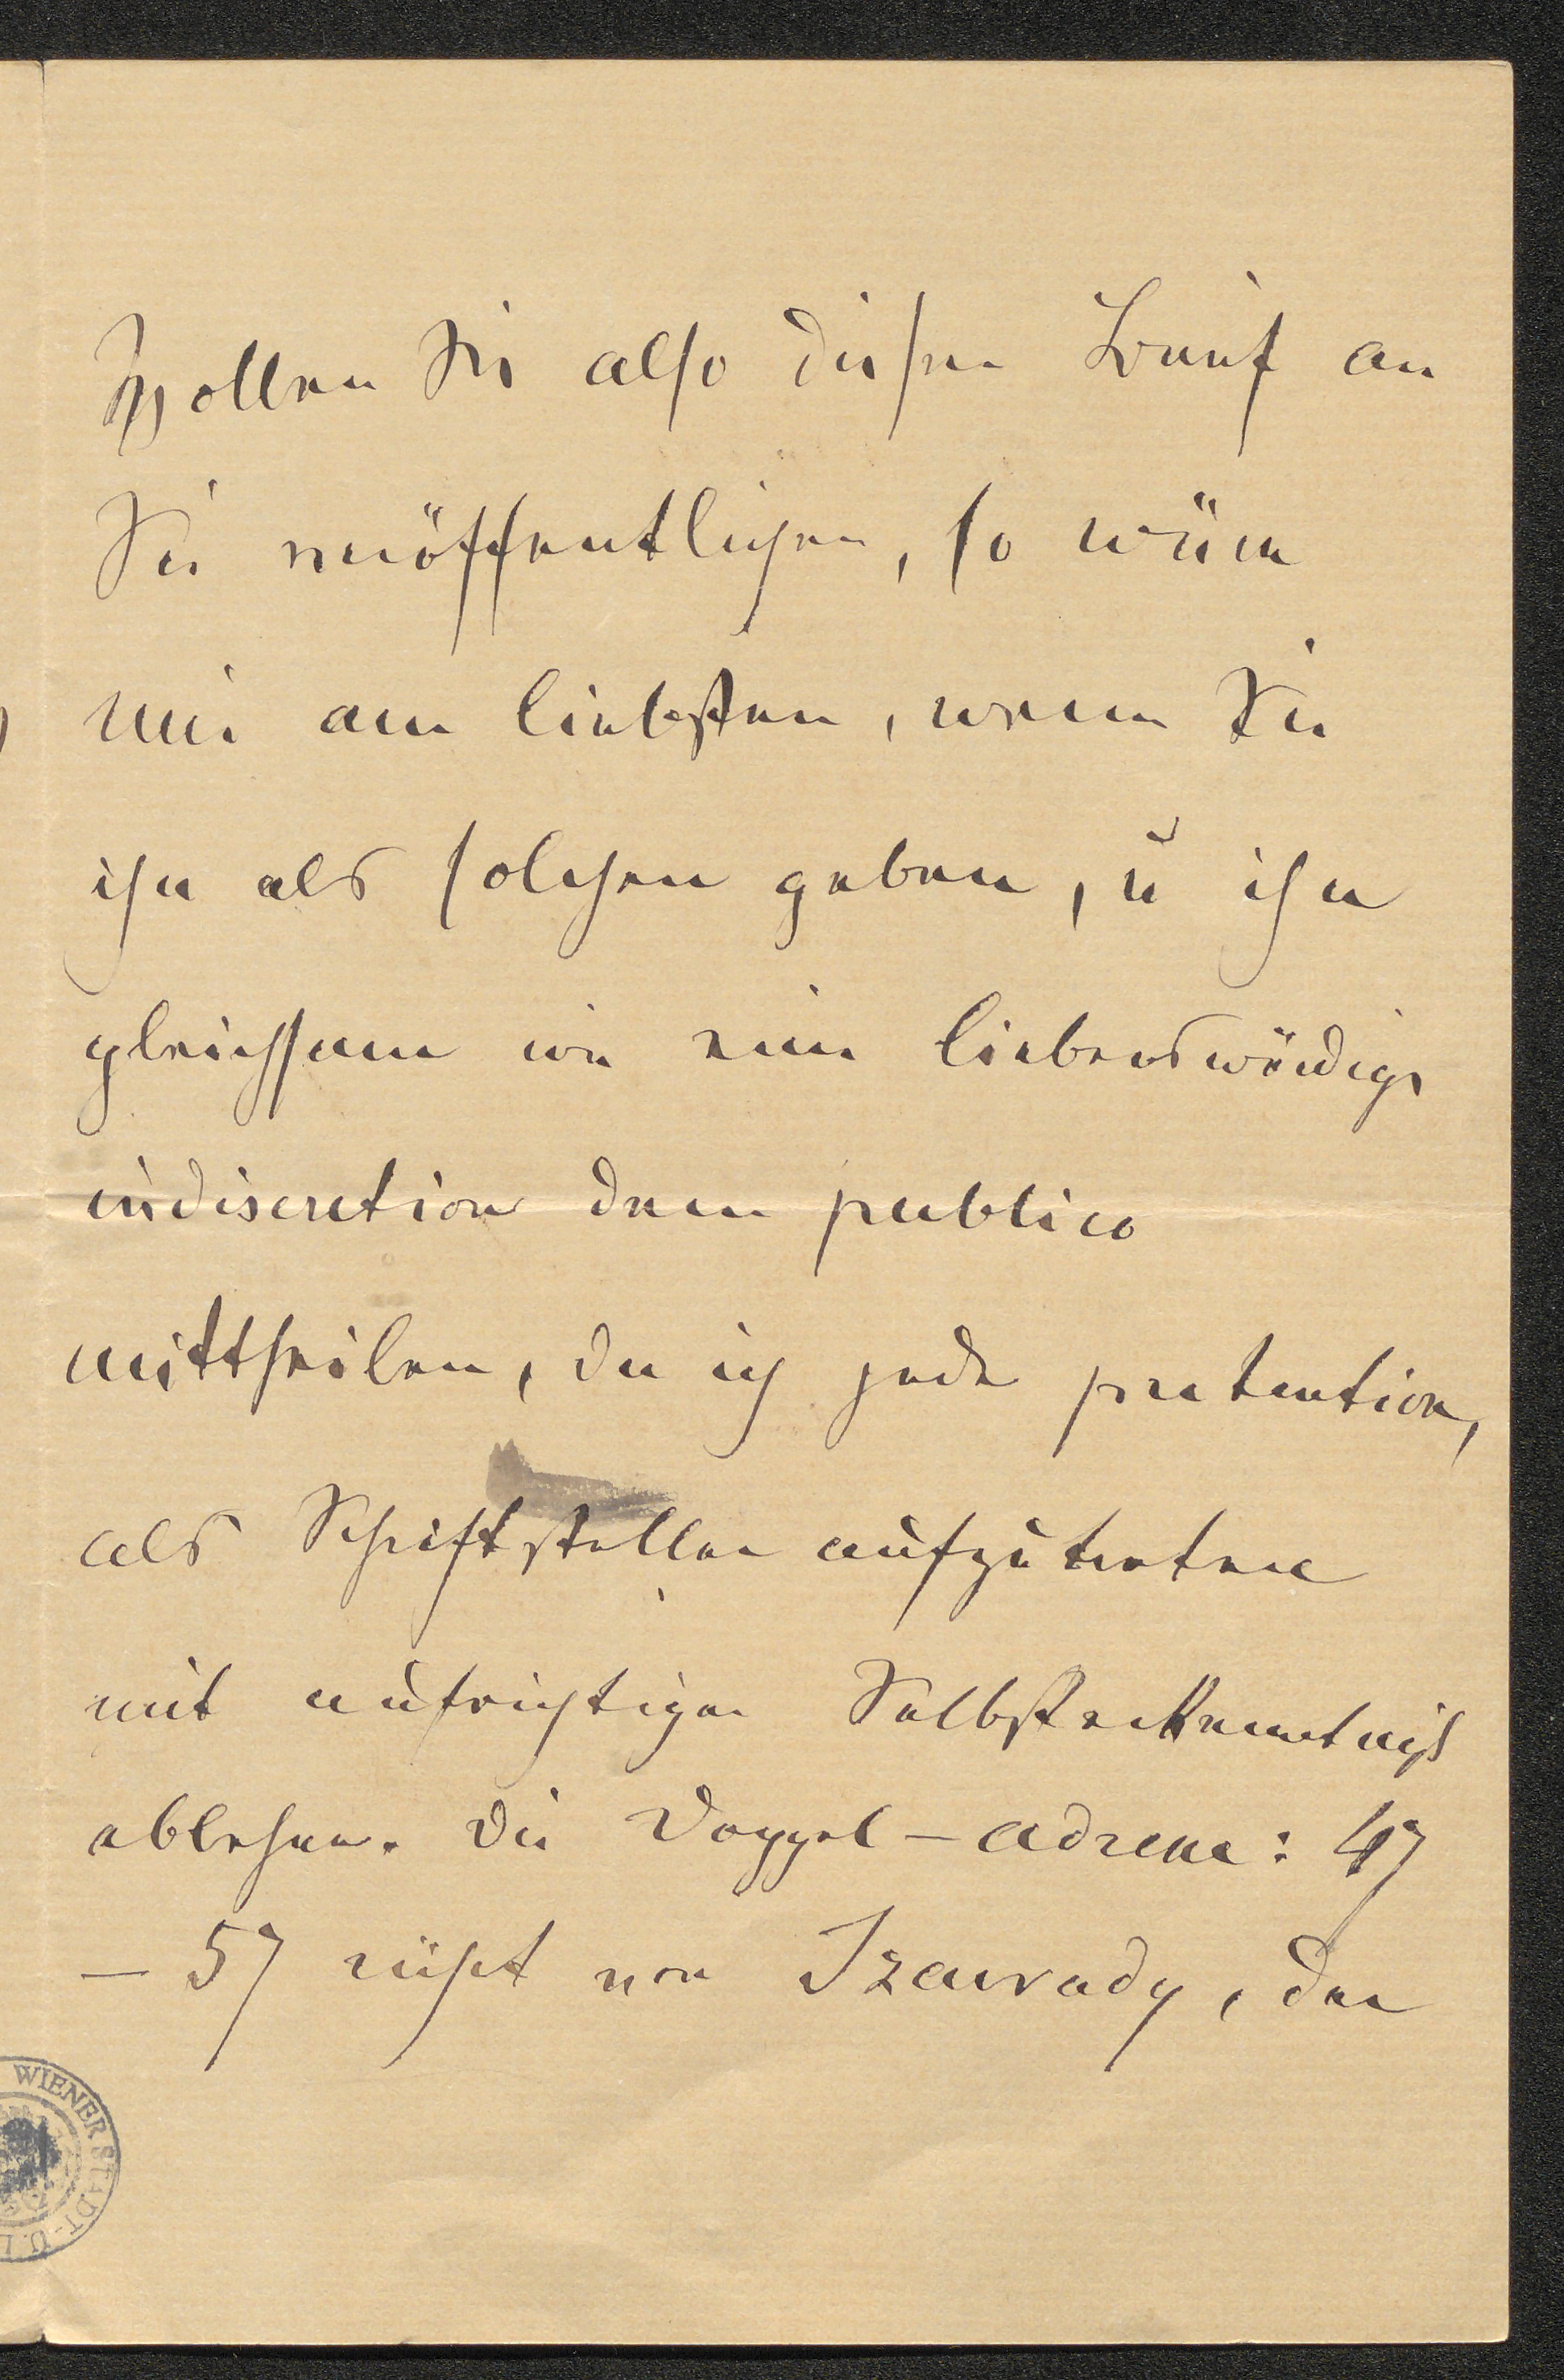 Wollen Sie also diesen Brief an
Sie veröffentlichen, so wäre
mir am liebsten, wenn Sie
ihn als solchen geben, u ihn
gleichsam wie eine liebenswürdige
indiscretion dem publico
mittheilen, da ich jede pretention,
als Schriftsteller aufzutreten
mit aufrichtiger Selbsterkenntniß
ablehne. Die Doppel-adresse: 47
— 57 rührt von Szarvady, der
WIENER STADT-U.L